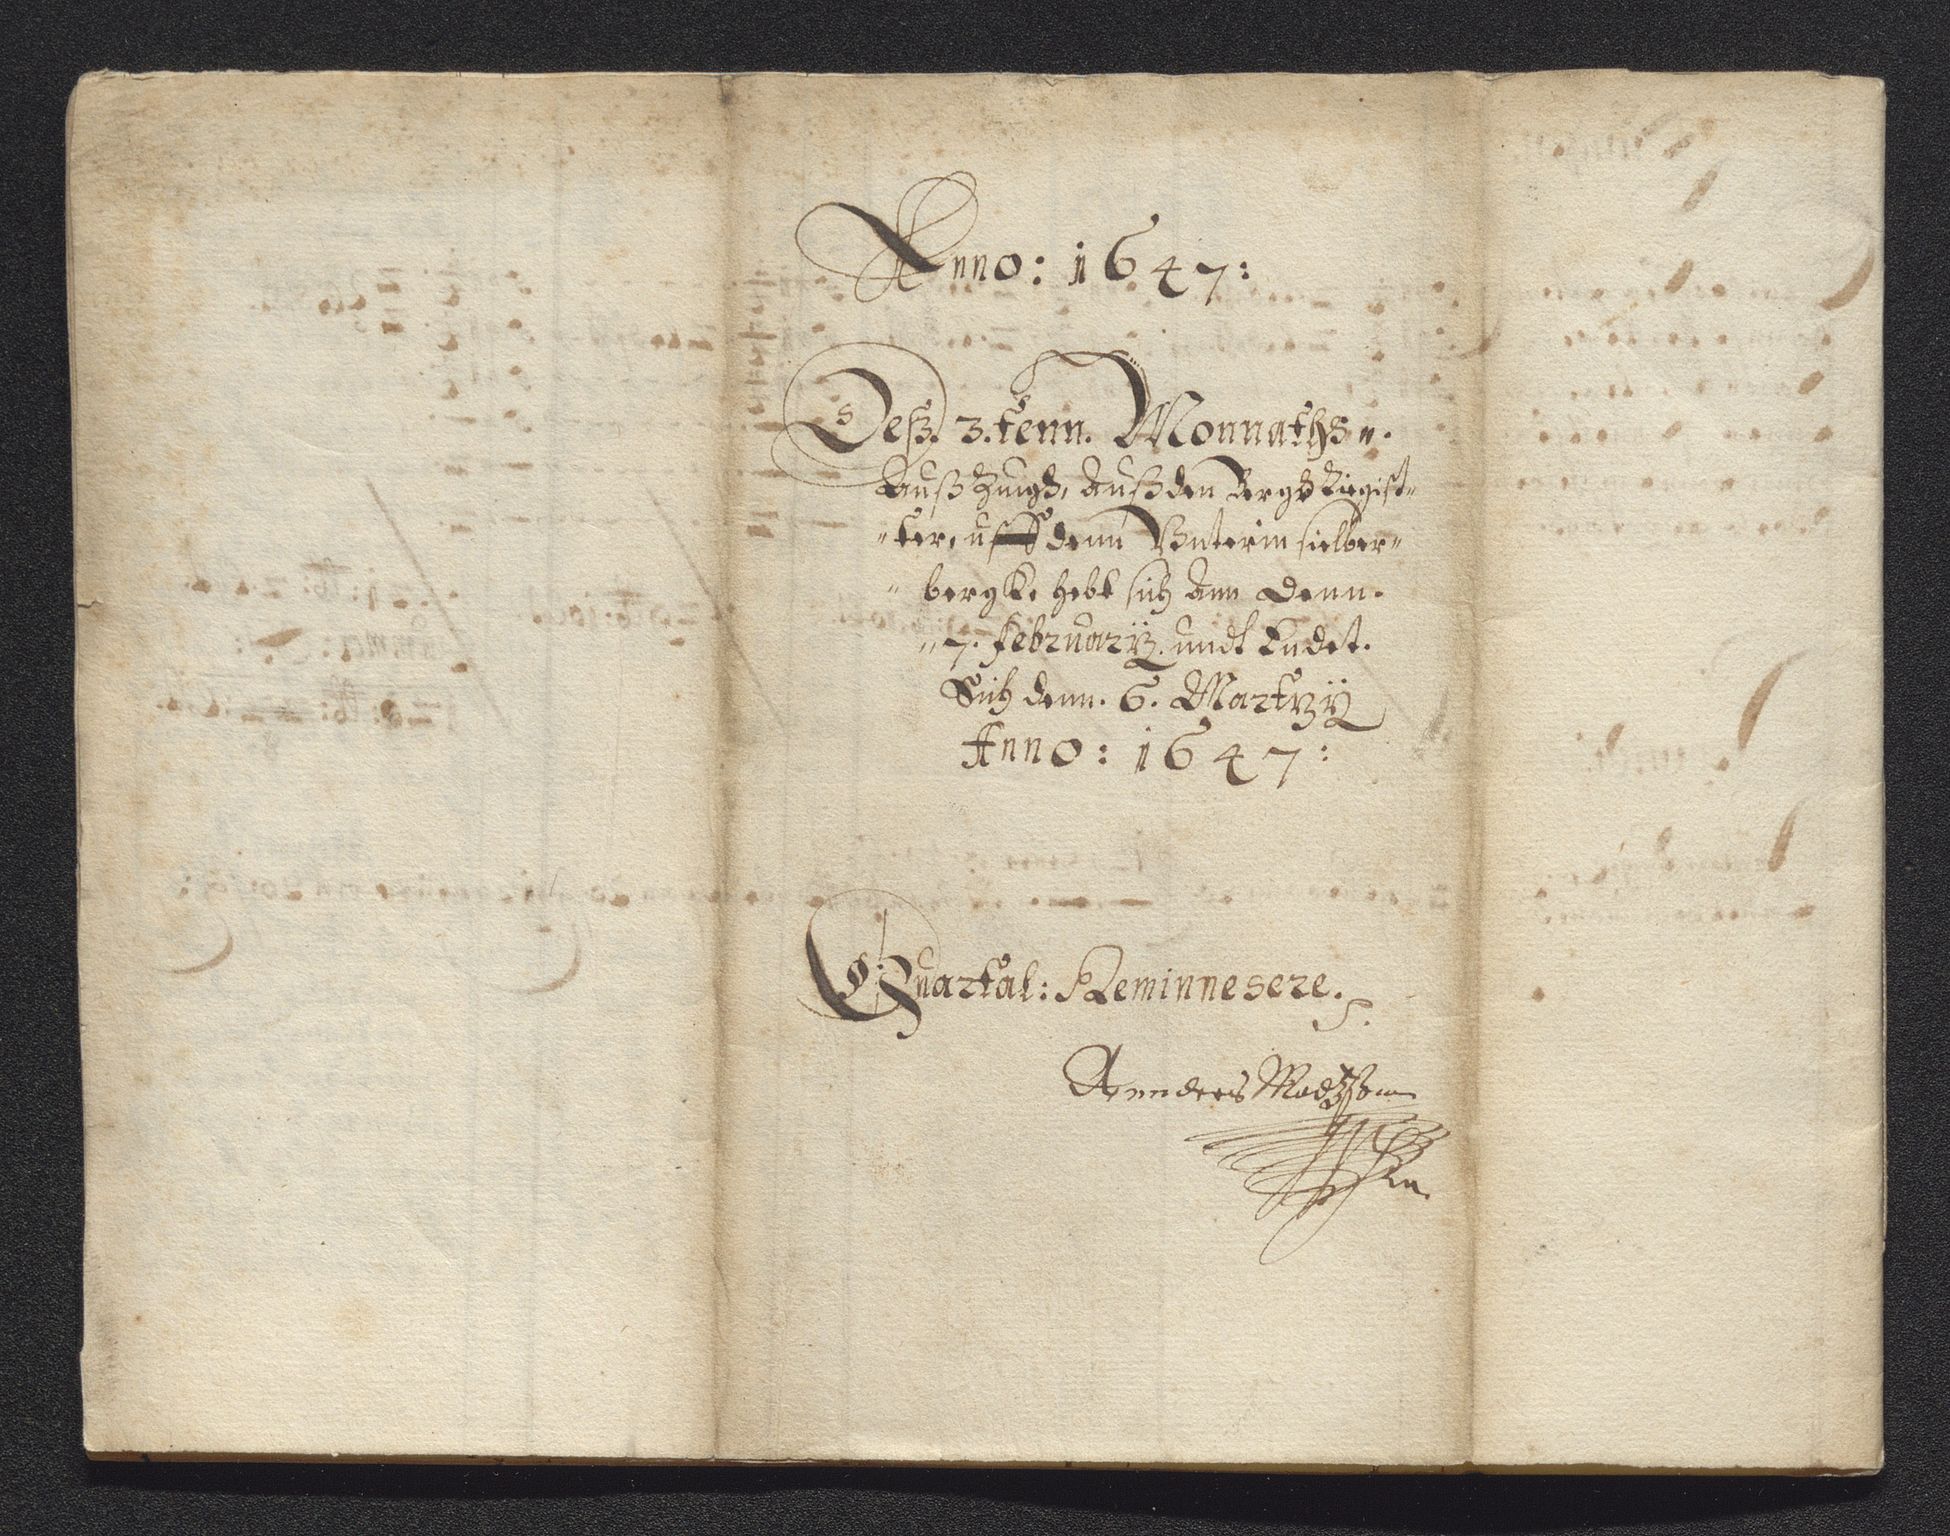 Anno: 1647:
Deß. 3. tenn. Monnaths
Außzuigh, Auß den Bergs Regist-
-ter, uff denn Vnterin silber-
bergk. hebt sich ann denn.
7. Februarÿ. undt Endet.
Sich denn. 6. Martzÿ
Anno: 1647:
Quartal: Reminnesere.
Annders Madtzsonn